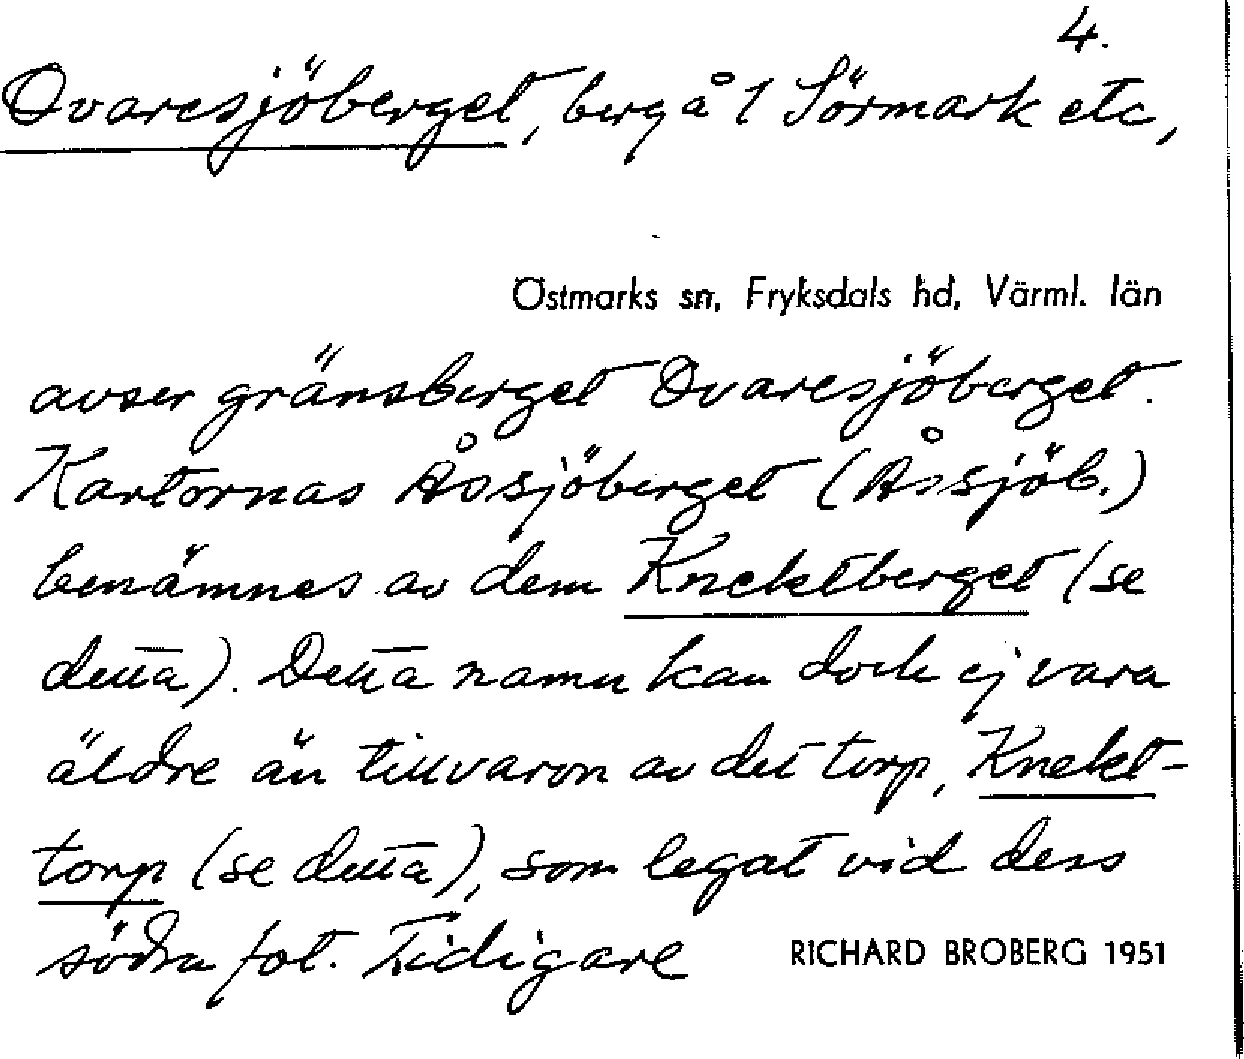 4.
Dvaresjöberget, berg å 1 Sörmark etc,
Östmarks sn, Fryksdals hd, Värml. län
avser gränsberget Dvaresjöberget.
Kartornas Åssjöberget (Åssjöb.)
benämnes av dem Knektberget (se
detta). Detta namn kan dock ej vara
äldre än tillvaron av det torp, Knekt-
torp (se detta), som legat vid dess
södra fot. Tidigare
RICHARD BROBERG 1951